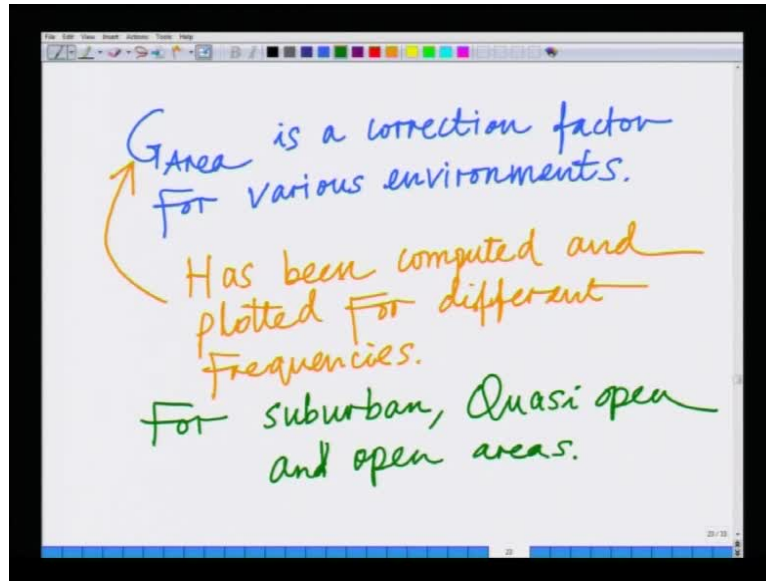 File Edit View Insert Actions Tools Help
GArea is a correction factor
For various environments.
Has been computed and
plotted For different
Frequencies.
For suburban, Quasi open
and open areas.
23/33
23